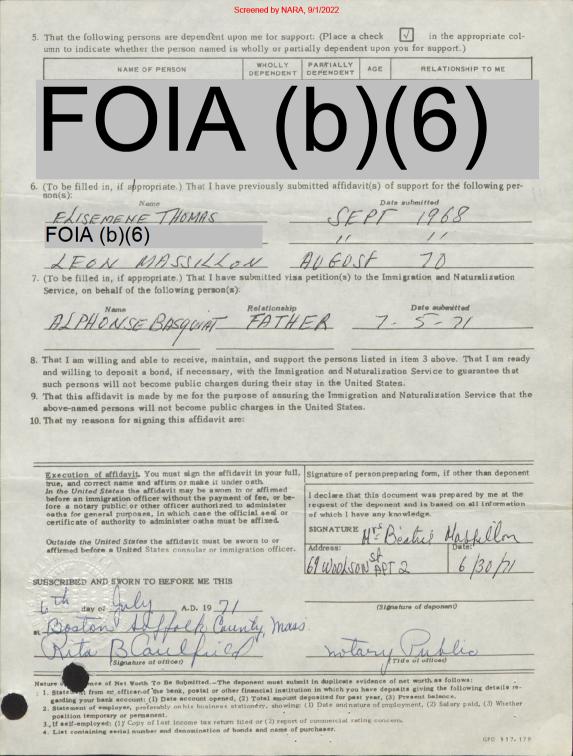 Screened by NARA, 9/1/2022
5. That the following persons are dependent upon me for support: (Place a check √ in the appropriate col-
umn to indicate whether the person named is wholly or partially dependent upon you for support.)
NAME OF PERSON WHOLLY DEPENDENT PARTIALLY DEPENDENT AGE RELATIONSHIP TO ME
FOIA (b)(6)
6. (To be filled in, if appropriate.) That I have previously submitted affidavit(s) of support for the following per-
son(s):
Name Date submitted
ELISEMENE THOMAS SEPT 1968
FOIA (b)(6) " "
LEON MASSILLON AUGUST 70
7. (To be filled in, if appropriate.) That I have submitted visa petition(s) to the Immigration and Naturalization
Service, on behalf of the following person(s):
Name Relationship Date submitted
ALPHONSE BASQUIAT FATHER 7-5-71
8. That I am willing and able to receive, maintain, and support the persons listed in item 3 above. That I am ready
and willing to deposit a bond, if necessary, with the Immigration and Naturalization Service to guarantee that
such persons will not become public charges during their stay in the United States.
9. That this affidavit is made by me for the purpose of assuring the Immigration and Naturalization Service that the
above-named persons will not become public charges in the United States.
10. That my reasons for signing this affidavit are:
Execution of affidavit. You must sign the affidavit in your full,
true, and correct name and affirm or make it under oath.
In the United States the affidavit may be sworn to or affirmed
before an immigration officer without the payment of fee, or be-
fore a notary public or other officer authorized to administer
oaths for general purposes, in which case the official seal or
certificate of authority to administer oaths must be affixed.
Outside the United States the affidavit must be sworn to or
affirmed before a United States consular or immigration officer.
Signature of person preparing form, if other than deponent
I declare that this document was prepared by me at the
request of the deponent and is based on all information
of which I have any knowledge.
SIGNATURE Mrs Béatrie Massillon
Address: Date:
69 WOOLSON ST APT 2 6/30/71
SUBSCRIBED AND SWORN TO BEFORE ME THIS
6th day of July A.D. 1971
(Signature of deponent)
at Boston Suffolk County, Mass.
Rita B Caulfield Notary Public
(Signature of officer) (Title of officer)
Nature of Net Worth To Be Submitted.—The deponent must submit in duplicate evidence of net worth as follows:
1. Statement from an officer of the bank, postal or other financial institution in which you have deposits giving the following details re-
garding your bank account: (1) Date account opened, (2) Total amount deposited for past year, (3) Present balance.
2. Statement of employer, preferably on his business stationery, showing: (1) Date and nature of employment, (2) Salary paid, (3) Whether
position temporary or permanent.
3. If self-employed: (1) Copy of last income tax return filed or (2) report of commercial rating concern.
4. List containing serial number and denomination of bonds and name of purchaser.
GPO 937-179